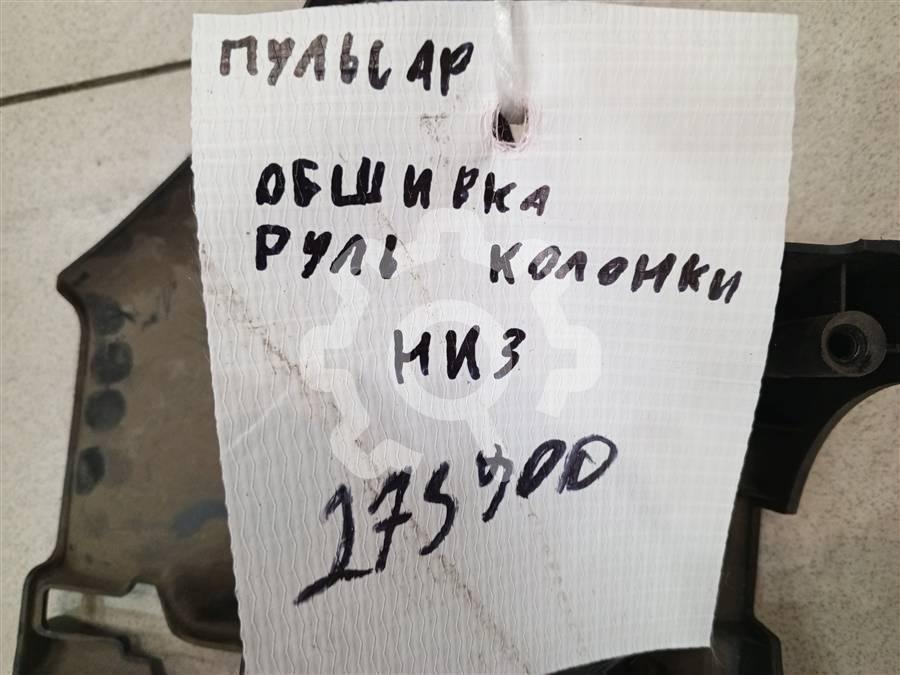 ПУЛЬСАР
ОБШИВКА
РУЛЬ КОЛОНКИ
НИЗ